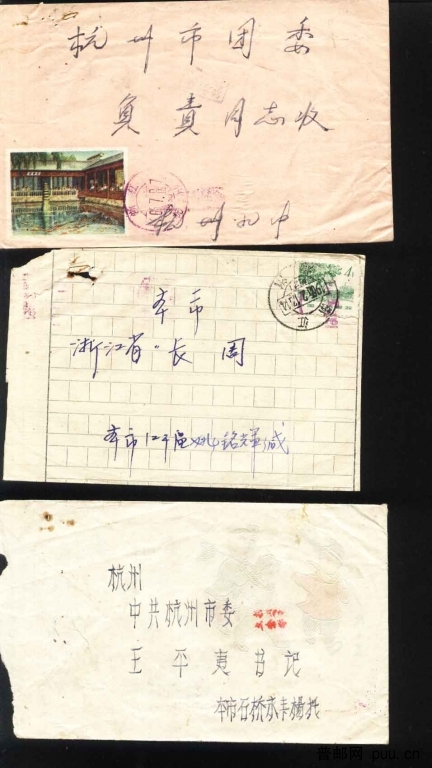 杭州市团委
负责同志收
杭州九中
4
本市
浙江省"长 周
本市江干区姚铭辉缄
杭州
中共杭州市委
王平夷书记
本市石桥永丰杨托
普邮网 puu.cn